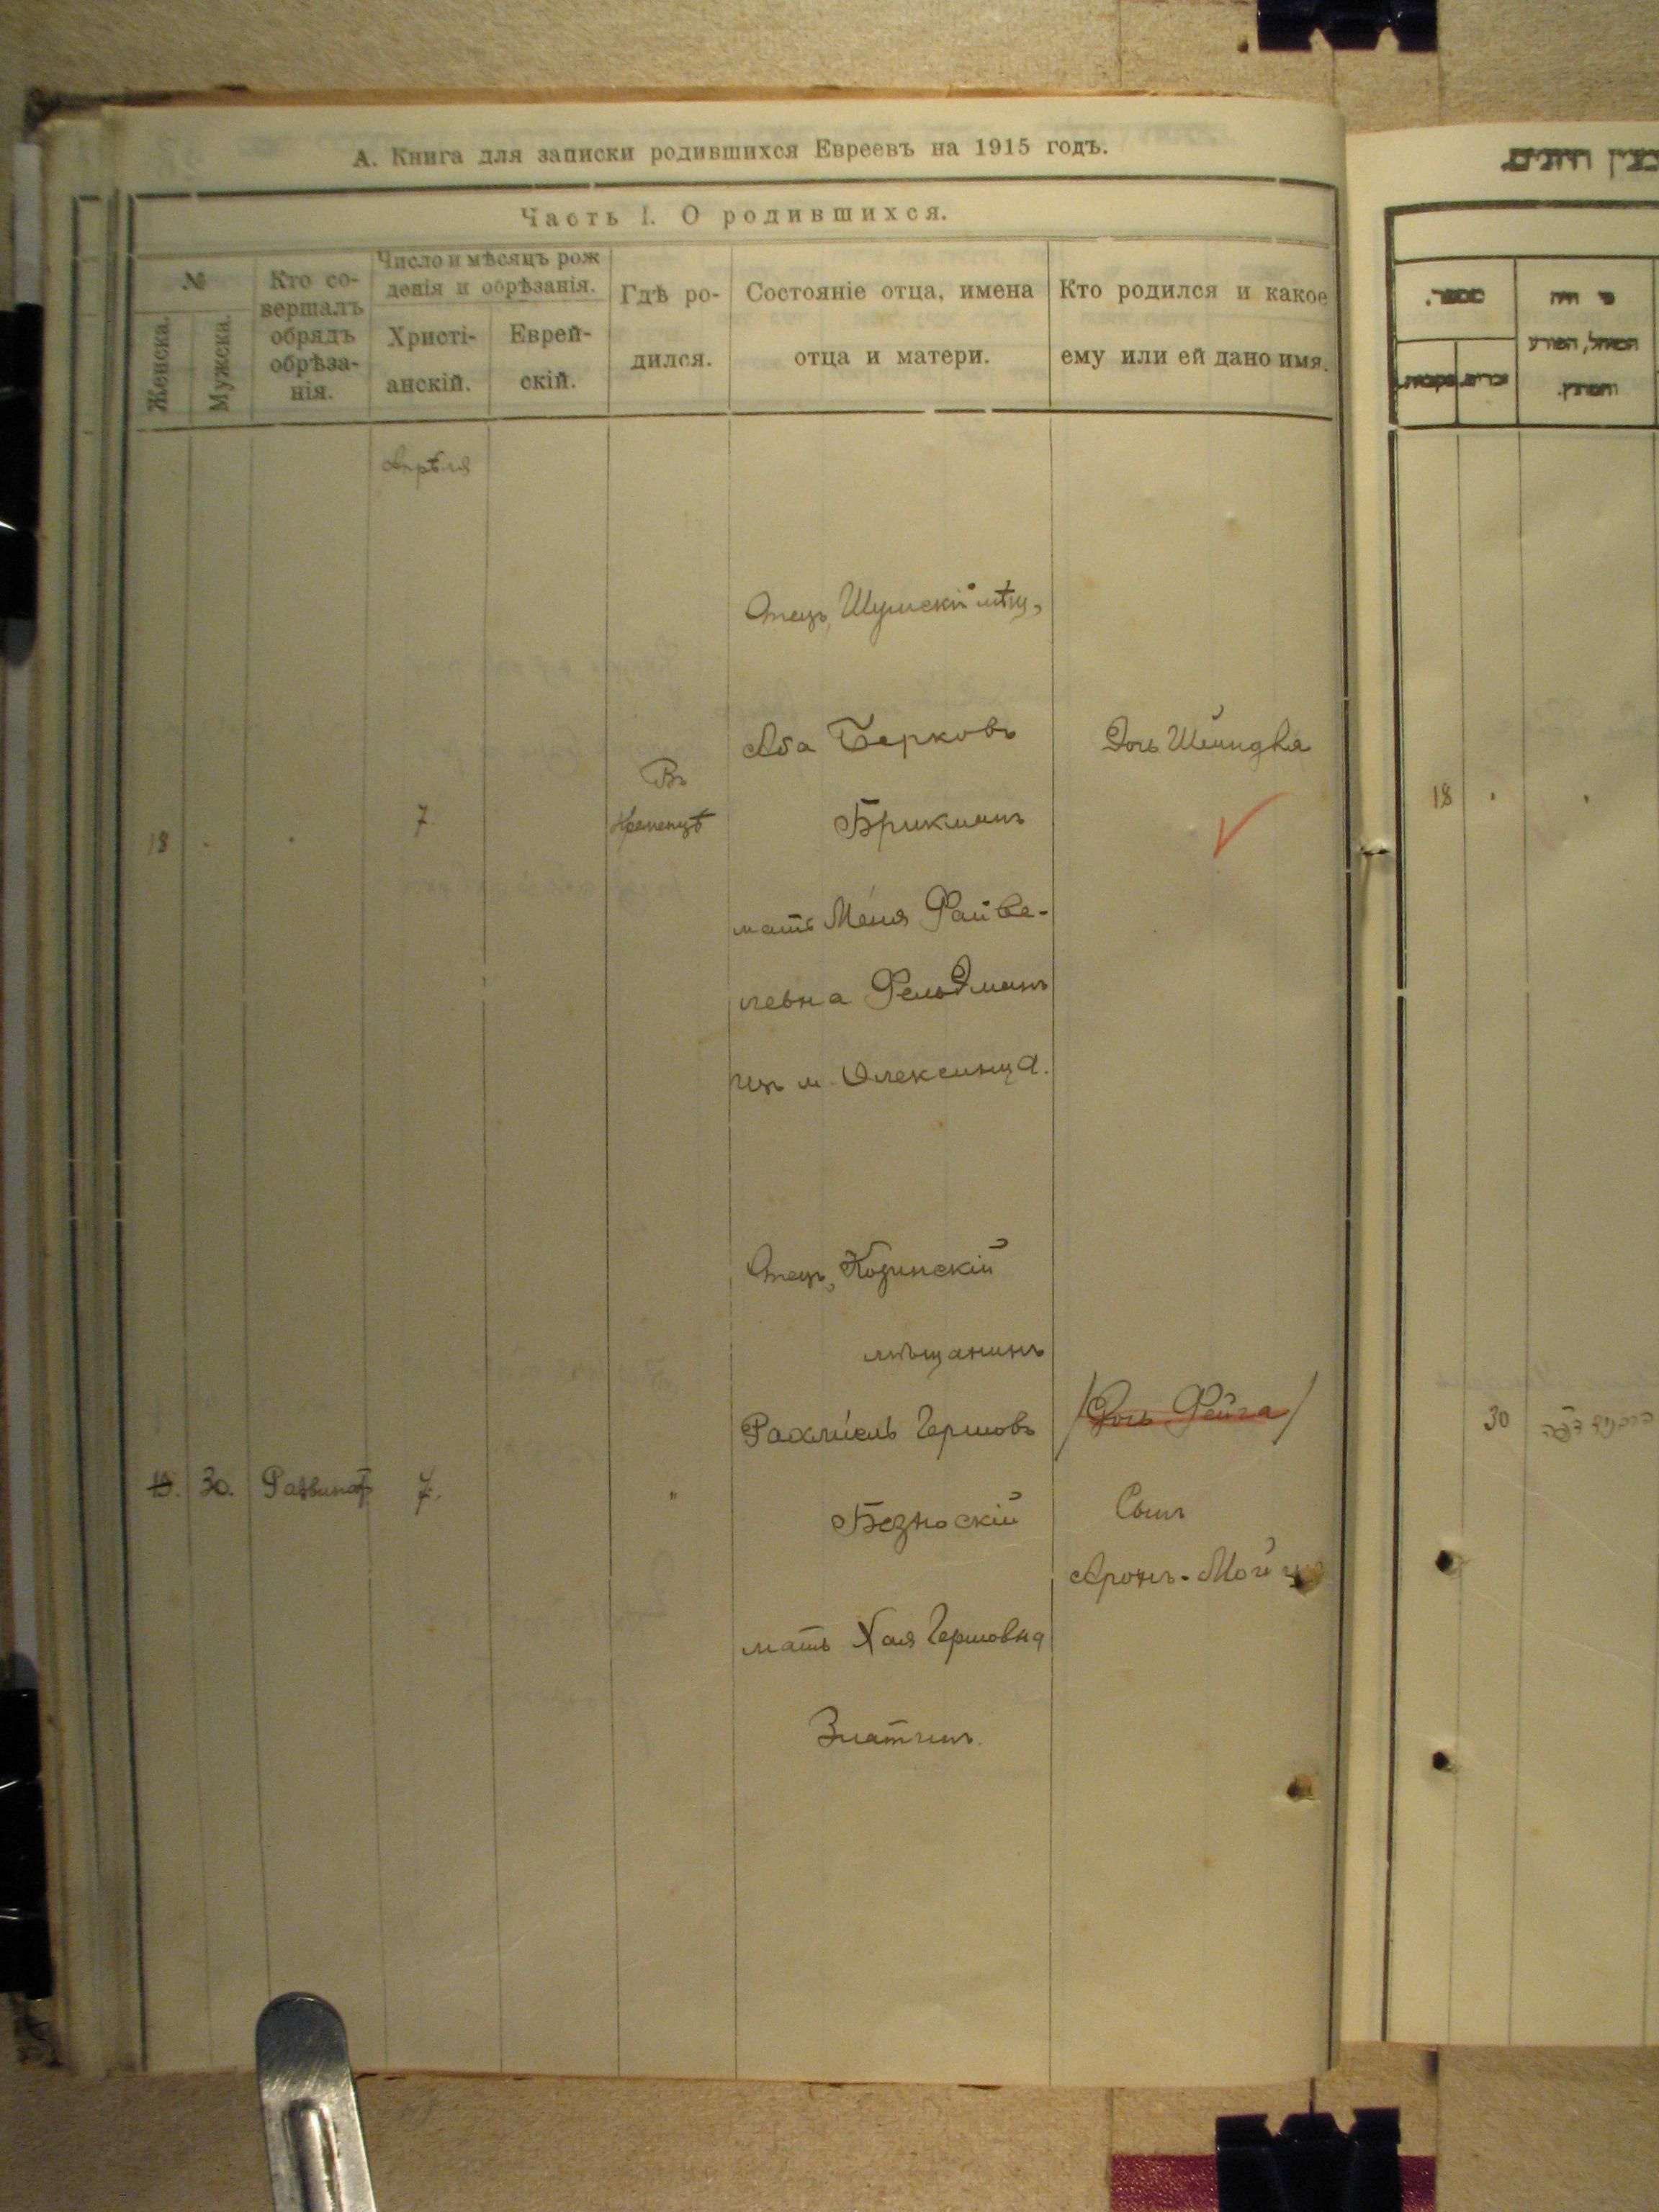 А. Книга для записки родившихся Евреевъ на 1915 годъ.
Часть I. О родившихся.
№
Женска.
Мужска.
Кто со-
вершалъ
обрядъ
обрѣза-
нія.
Число и мѣсяцъ рож
денія и обрѣзанія.
Христі-
анскій.
Еврей-
скій.
Гдѣ ро-
дился.
Состояніе отца, имена
отца и матери.
Кто родился и какое
ему или ей дано имя.
Апрѣля
18
7
Въ
Кременцѣ
Отецъ, Шумскій мѣщ,
Аба Берковъ
Брикманъ
мать Меня Файве-
левна Фельдманъ
изъ м. Олексинца.
Дочь Шейндля
19. 30.
7.
"
Отецъ, Козинскій
мѣщанинъ
Рахміель Гершовъ
Безноскій
мать Хая Гершовна
Златчинъ.
/Дочь Фейга/
Сынъ
Аронъ-Мой
18
30